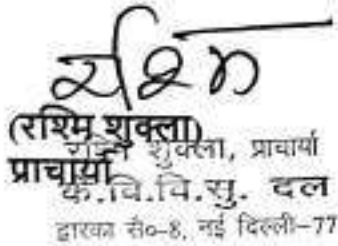 रश्मि
(रश्मि शुक्ला)
रश्मि शुक्ला, प्राचार्या
प्राचार्या
के.वि.वि.सु. दल
द्वारका सै०-8, नई दिल्ली-77